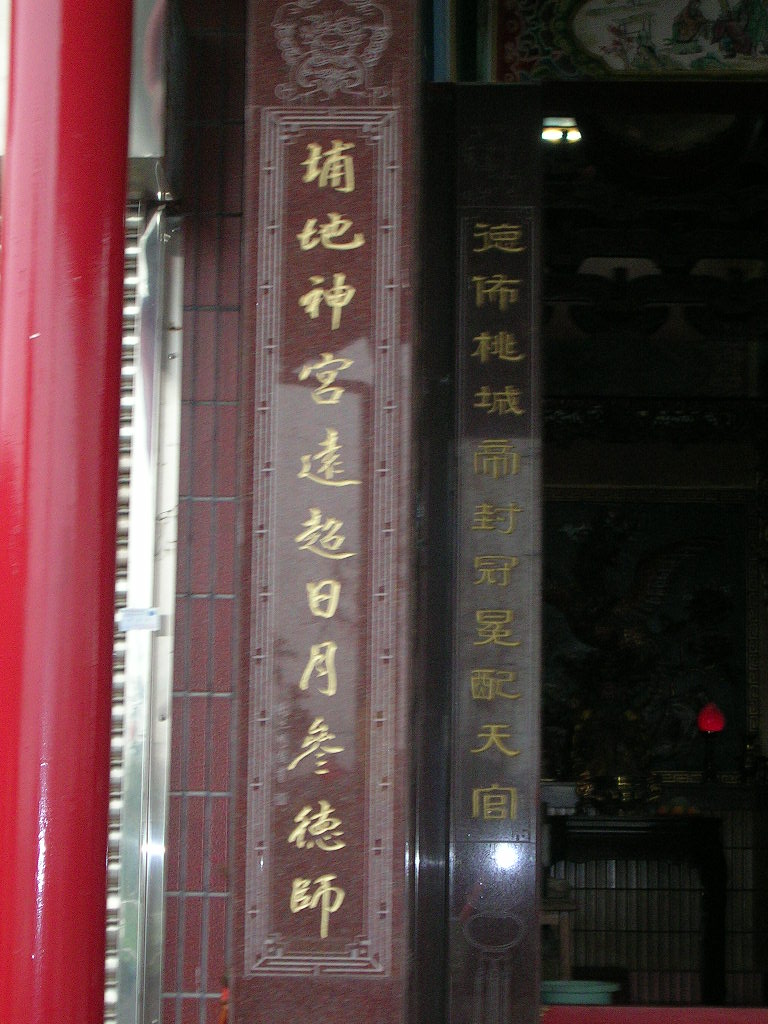 埔地神宮遠超日月參德師
德佈桃城帝封冠冕配天官